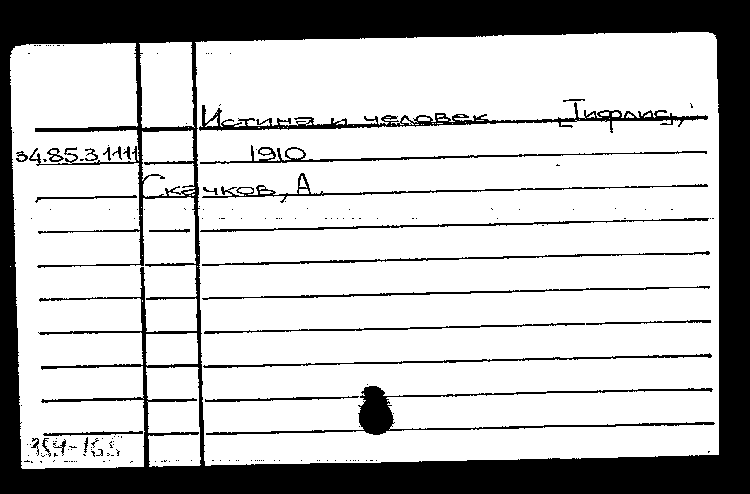 Истина и человек [Тифлис],
34.85.3.1111 1910
Скачков, А.